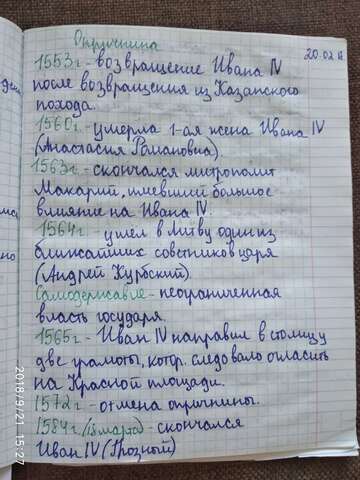 Опричнина
20.02.18
1553г - возвращение Ивана IV
после возвращения из Казанского
похода.
1560г - умерла 1-ая жена Ивана IV
(Анастасия Романовна).
1563г - скончался митрополит
Макарий, имевший большое
влияние на Ивана IV.
1564г. - ушел в Литву один из
ближайших советников царя
(Андрей Курбский)
Самодержавие - неограниченная
власть государя.
1565г - Иван IV направил в столицу
две грамоты, котор. следовало огласить
на Красной площади.
1572г - отмена опричнины.
1584г (18 марта) - скончался
Иван IV (Грозный)
2018/9/21 15:27